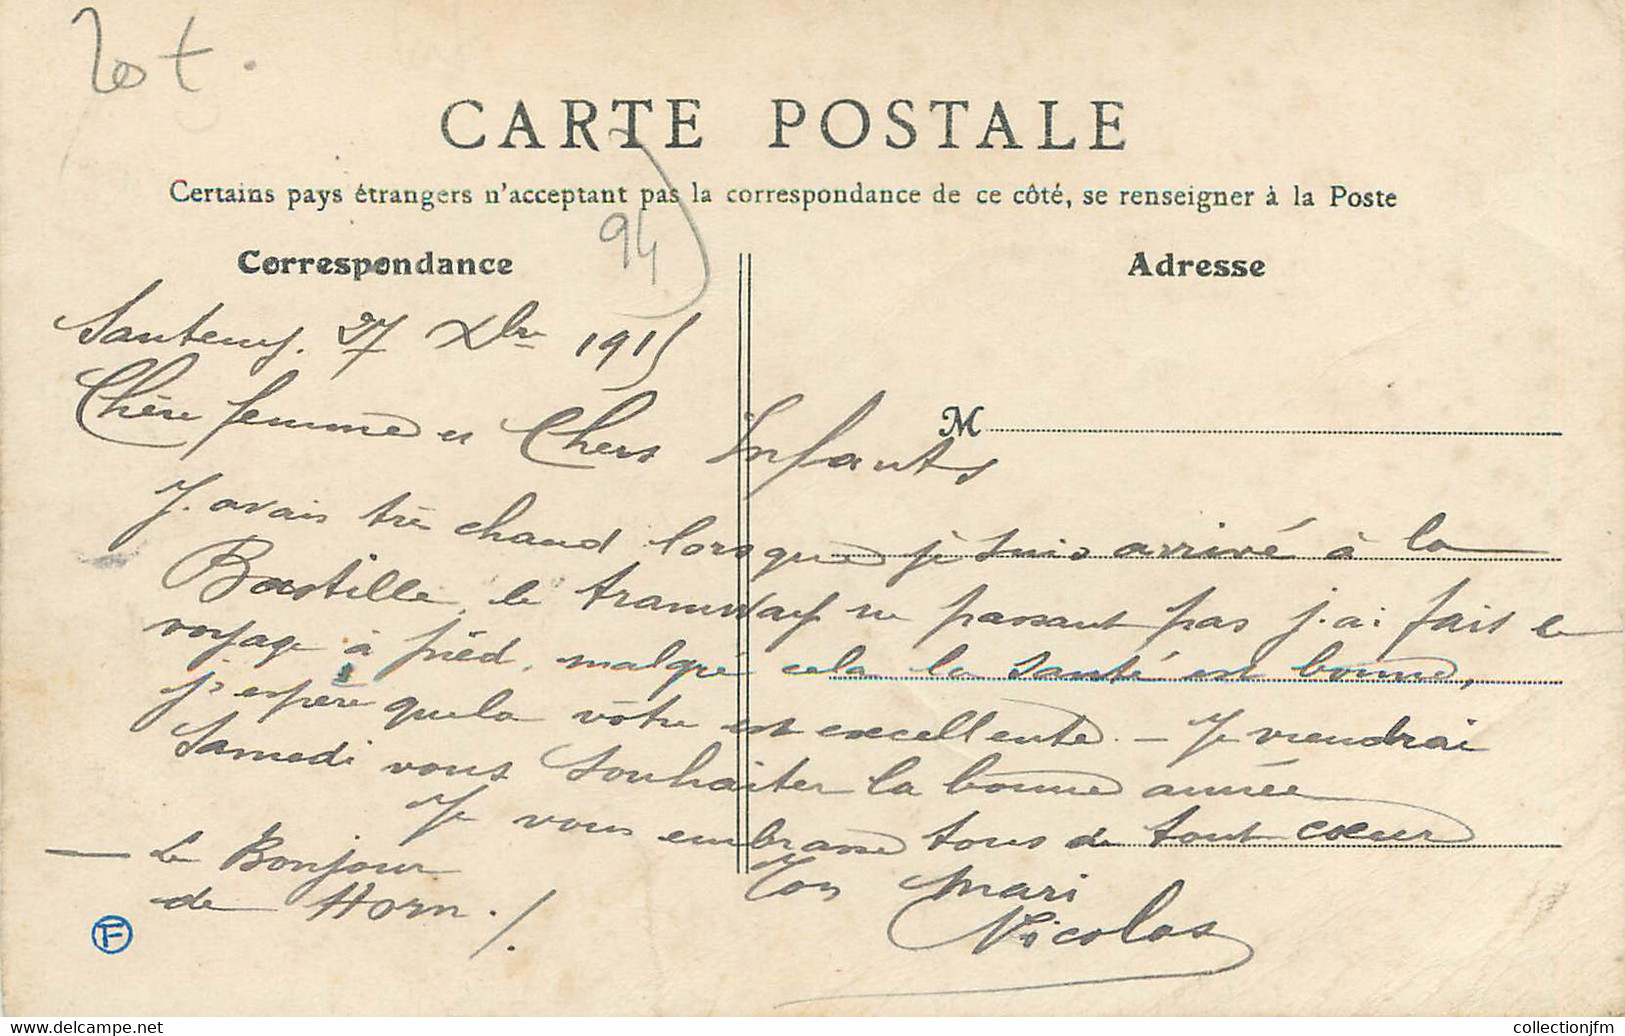 CARTE POSTALE
Certains pays étrangers n'acceptant pas la correspondance de ce côté, se renseigner à la Poste
94
Correspondance
Adresse
M
Santeny. 27 Xbre 1915
Chère femme et Chers Enfants
J'avais très chaud lorsque je suis arrivé à la
Bastille, le tramway ne passant pas j'ai fait le
voyage à pied, malgré cela la santé est bonne,
j'espère que la vôtre est excellente. — Je viendrai
Samedi vous souhaiter la bonne année
Je vous embrasse tous de tout coeur
— Le Bonjour
de Horn./.
Ton Mari
Nicolas
F
www.delcampe.net
collectionjfm